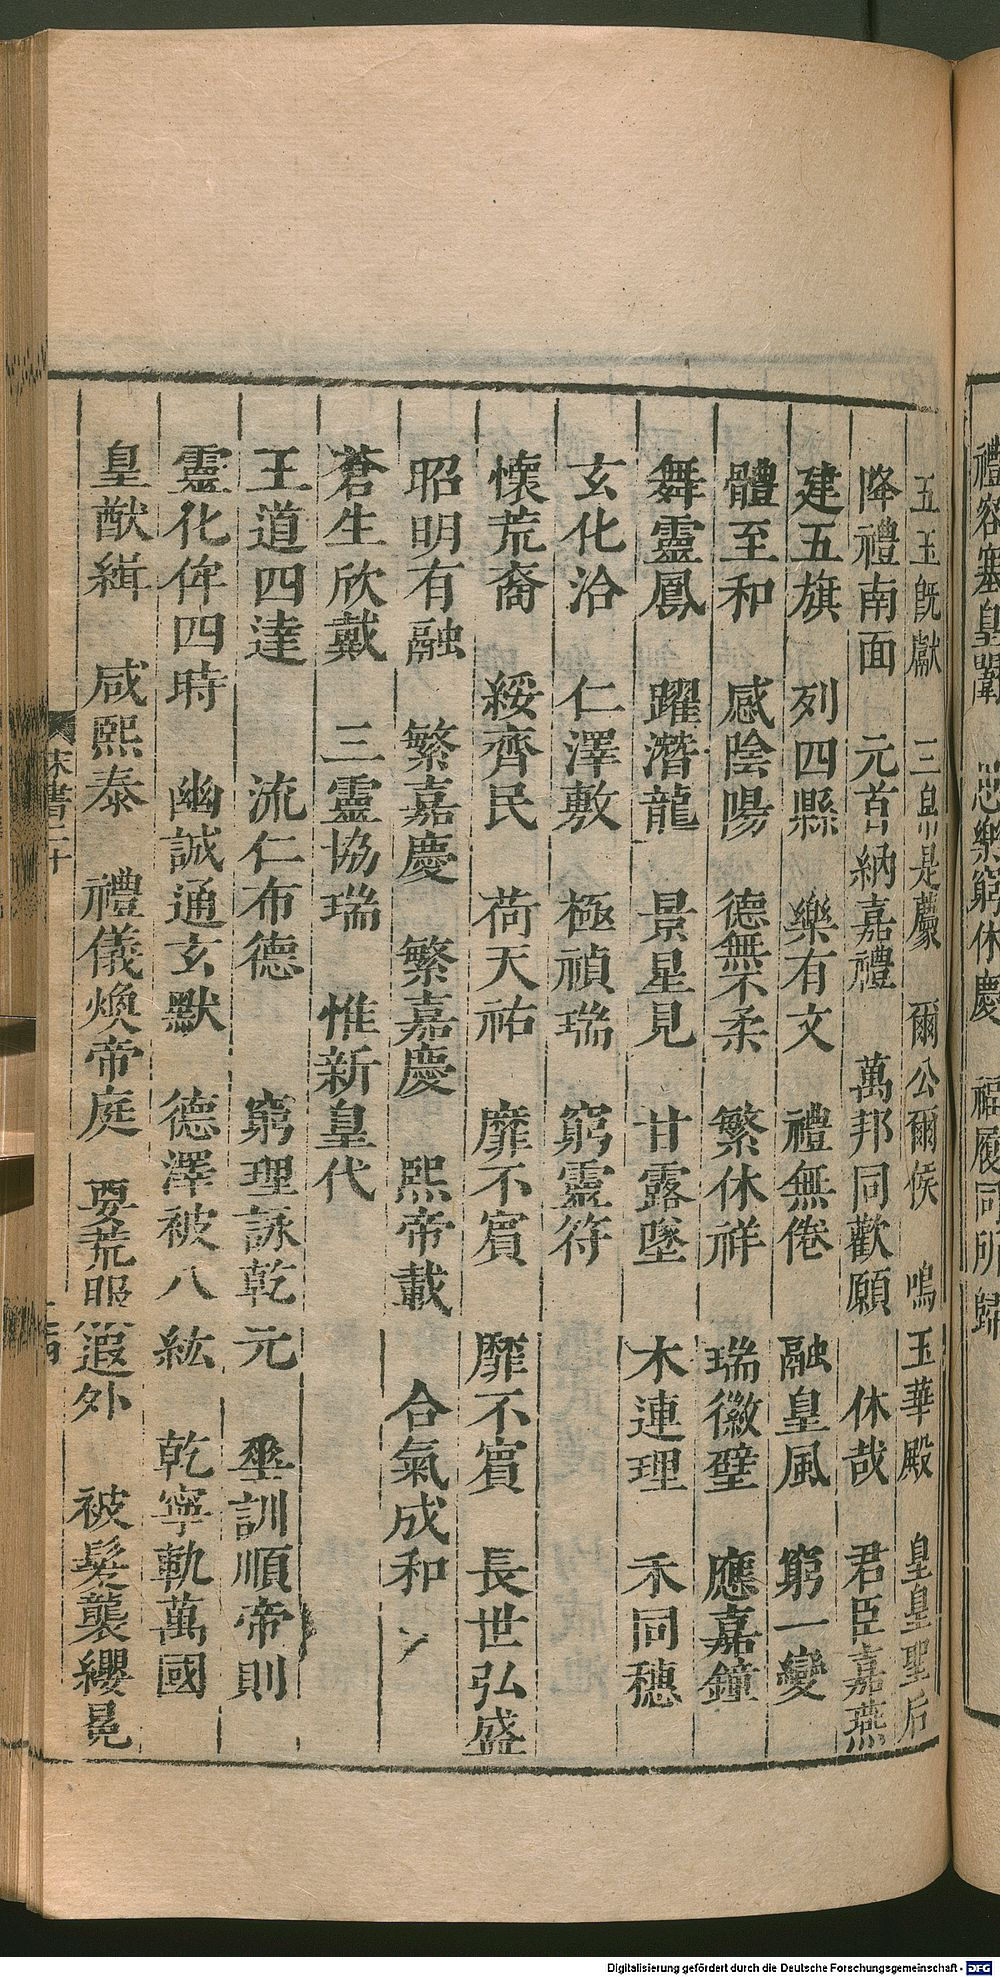 禮容塞皇 樂窮休慶 福履同所歸
五玉既獻 三帛是薦 爾公爾侯 鳴玉華殿 皇皇聖后
降禮南面 元首納嘉禮 萬邦同歡願 休哉 君臣嘉燕
建五旗 列四縣 樂有文 禮無倦 融皇風 窮一變
體至和 感陰陽 德無不柔 繁休祥 瑞徽璧 應嘉鐘
舞靈鳳 躍潛龍 景星見 甘露墜 木連理 禾同穗
玄化洽 仁澤敷 極禎瑞 窮靈符
懷荒裔 綏齊民 荷天祐 靡不賓 靡不賓 長世弘盛
昭明有融 繁嘉慶 繁嘉慶 熙帝載 合氣成和
蒼生欣戴 三靈協瑞 惟新皇代
王道四達 流仁布德 窮理詠乾元 垂訓順帝則
靈化侔四時 幽誠通玄默 德澤被八紘 乾寧軌萬國
皇猷緝 咸熙泰 禮儀煥帝庭 要荒服遐外 被髮襲纓冕
宋書二十
Digitalisierung gefördert durch die Deutsche Forschungsgemeinschaft - DFG